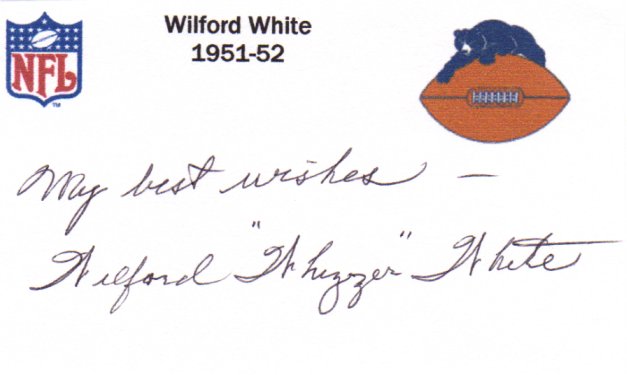 NFL
TM
Wilford White
1951-52
My best wishes —
Wilford "Whizzer" White